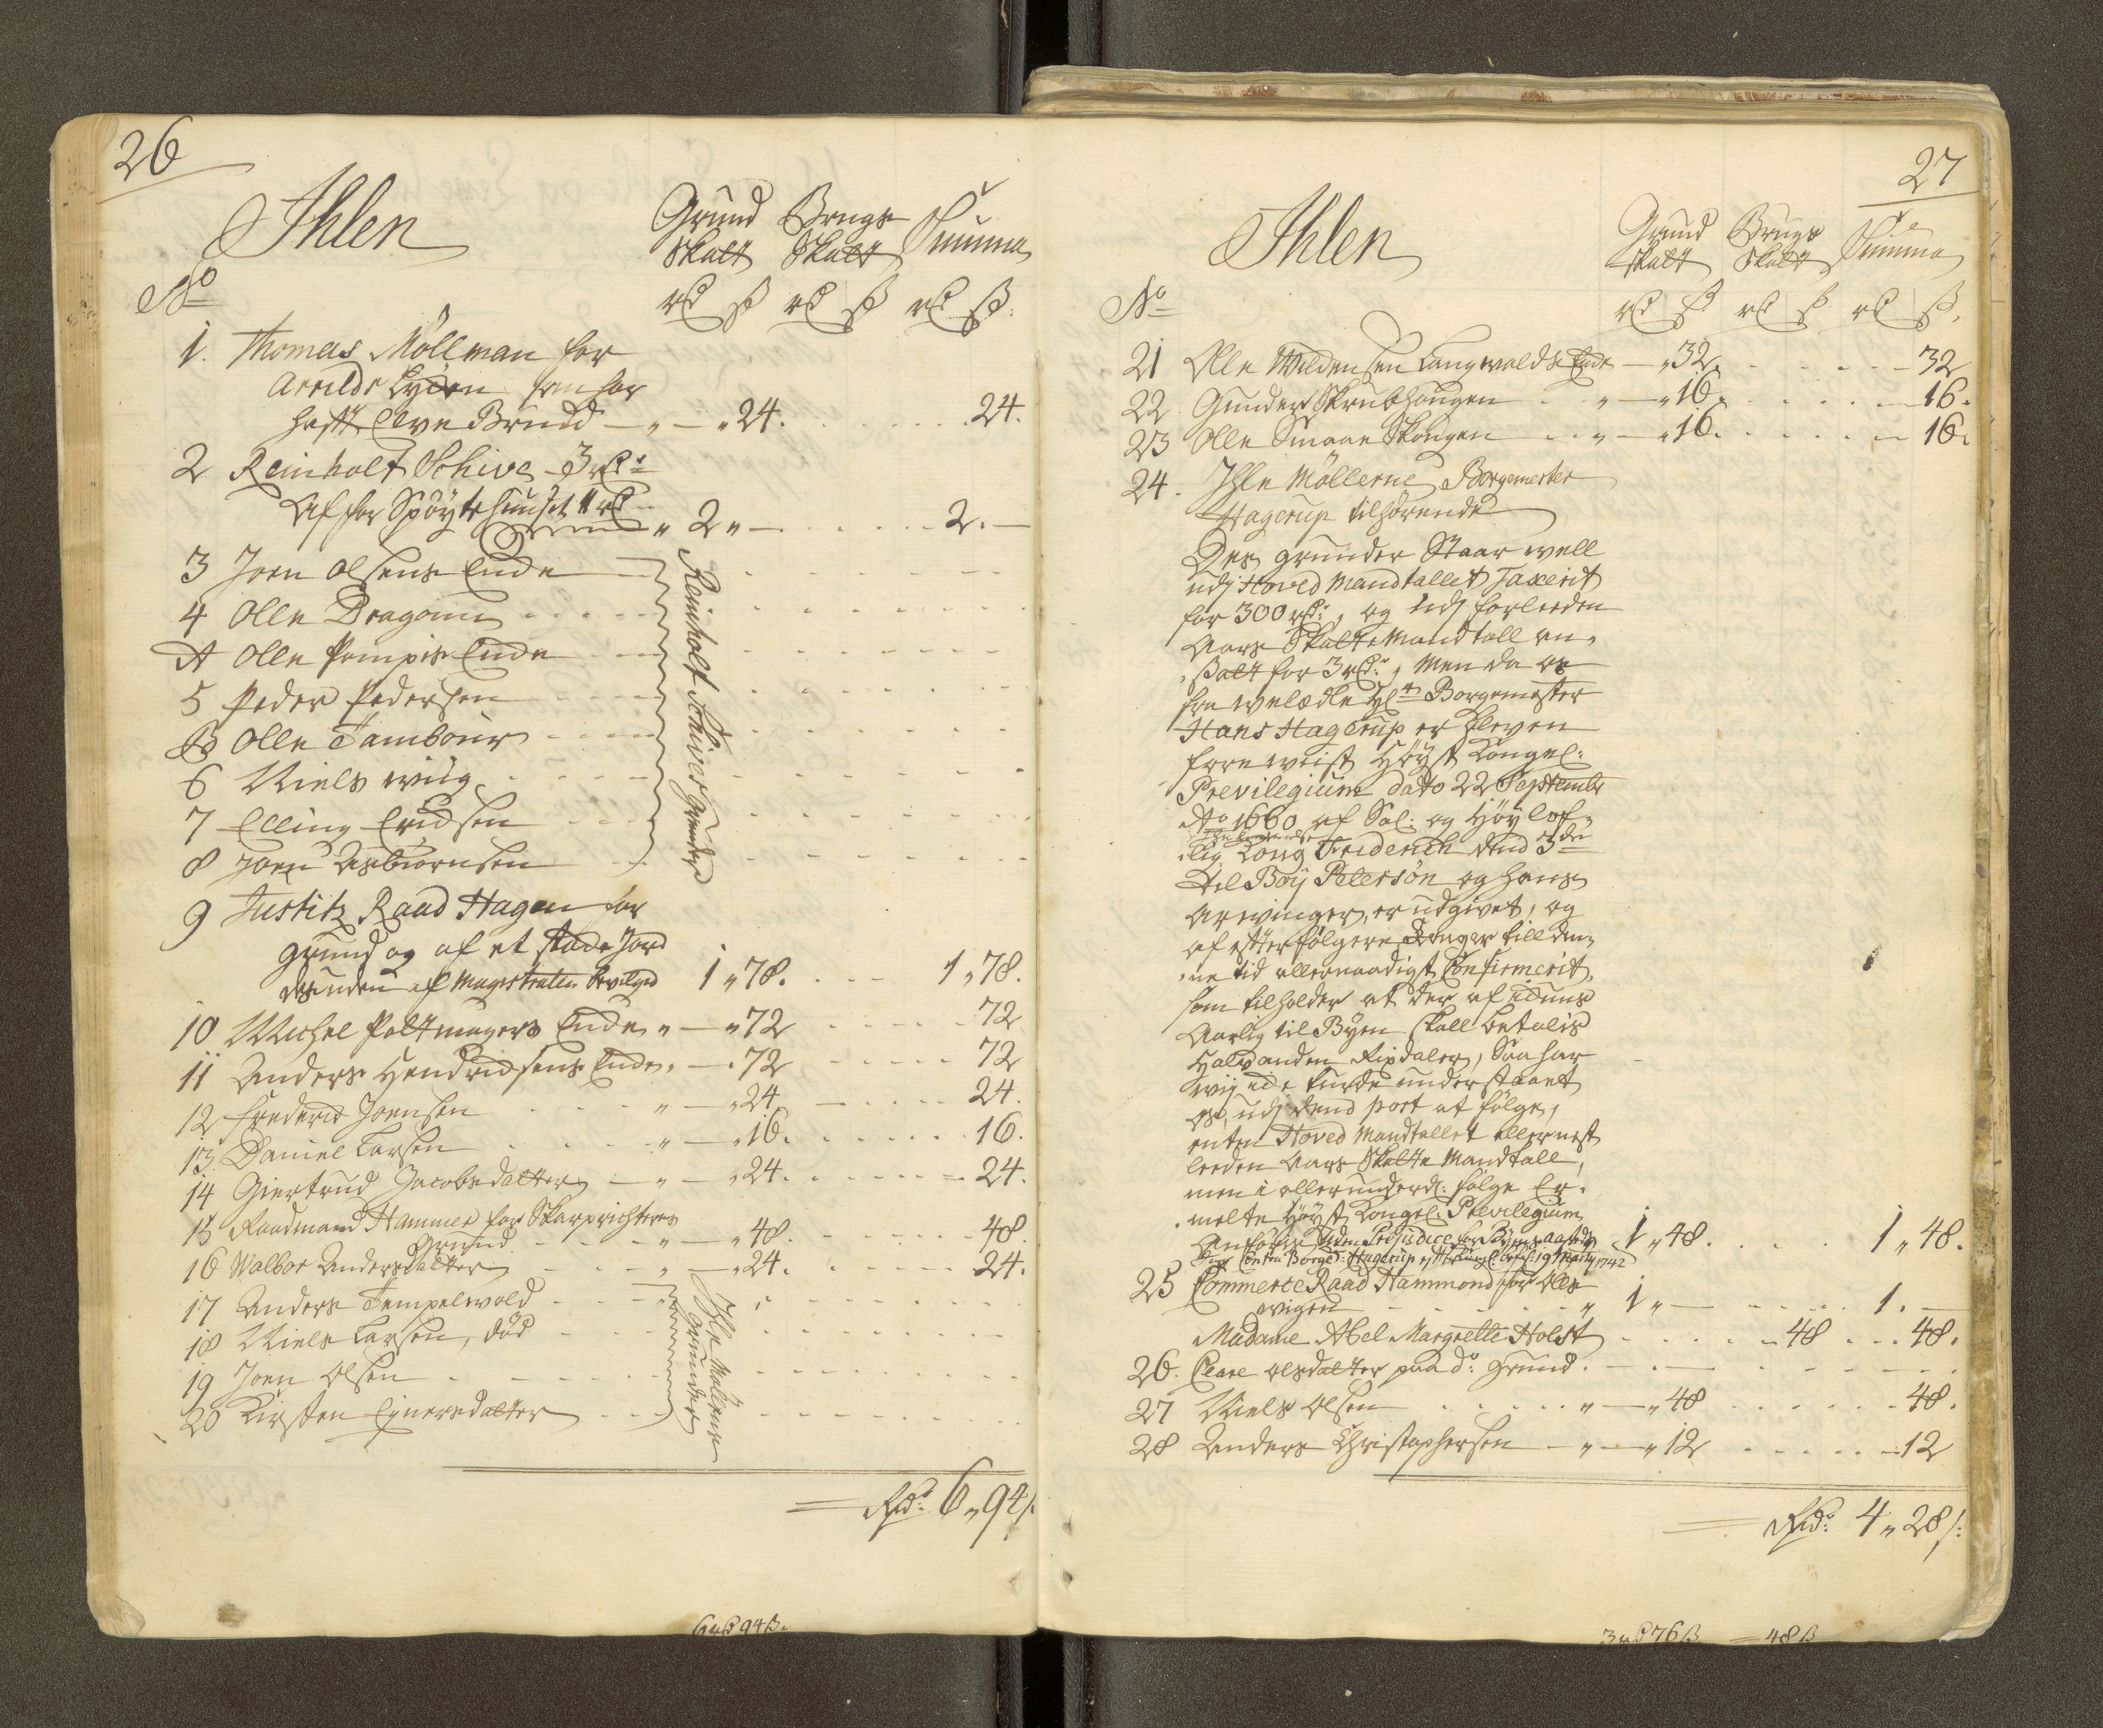 26
Ihlen
Grund Brugs Summa
Skatt Skatt
No
rd ß rd ß rd ß
1. Thomas Möllman for
Arrilds Lycken som har
hafft Elve Brudd — „ — „ 24. 24.
2 Reinholt Schive 3 rd:
Af for Spøyte Huuset 1 rd
„ 2 „ — 2. —
3 Joen Olsens Enke
4 Olle Dragoun
A Olle Pompis Enke
5 Peder Pedersen
B Olle Tambour
6 Niels Wiig
7 Elling Erichsen
8 Joen Asbiørnsen
Reinholt Schives grunder
9 Justitz Raad Hagen for
grund og af et støcke Jord
des uden af Magistraten bevilged 1 „ 78. 1 „ 78.
10 Michel Poltmagers Enke „ — „ 72 72
11 Anders Hendrichsens Enke „ — „ 72 72
12 Frederic Joensen „ — „ 24 24.
13. Daniel Larsen „ — „ 16. 16.
14 Giertrud Jacobsdatter — „ — „ 24. 24.
15 Raadmand Hammer for Skarprichterens
Grund „ — „ 48. 48.
16 Walbor Andersdatter „ — „ 24. 24.
17 Anders Tempelwold
18 Niels Larsen, død
19 Joen Olsen
20 Kirsten Einersdatter
Ihle Møllens grunder
Rd: 6 „ 94 ß
6 rd 94 ß.
27
Ihlen
Grund Brugs Summa
Skatt Skatt
No
rd ß rd ß rd ß.
21 Olle Wildensen Langwolds Enke — „ 32. 32
22 Gunder Skrubhougen „ — „ 16. 16.
23 Olle Smaae Skougen „ — „ 16. 16.
24. Ihle Møllerne Borgemester
Hagerup tilhørende
Des grunder Staar well
udj Hoved Mandtallet Taxerit
for 300 rd:, og udj forleeden
Aars Skatte Mandtall an„
„satt for 3 rd:, Men da os
fra welædle Hr Borgemester
Hans Hagerup er bleven
forewiist Høyst Kongel:
Previlegium dato 22 September
Ao 1660 af Sal: og Høylof„
„lig Kong Friderich dend 3de
til Boy Petersøn og hans
Arwinger, er udgivet, og
af efterfølgere Konger till den„
„ne tid allernaadigst Confirmerit,
som tilholder at der af icuns
Aarlig til Byen skall betalis
Halvanden Rixdaler, Saa har
wij icke turde understaaet
os, udj dend post at følge,
enten Hoved Mandtallet eller nest
leeden Aars Skatte Mandtall,
men i allerunderd: følge Er„
„melte Høyst Kongel: Previlegium
Anføhre uden Prejudice for Byens
Contra Borgem: Hagerup 1742 1 „ 48. 1 „ 48.
25 Commerce Raad Hammond for Olle
wigen „ 1 „ — 1. —
Madame Abel Margrette Holst 48 48.
26. Ceare Olsdatter paa do: grund.
27 Niels Olsen „ — „ 48 48.
28 Anders Christophersen „ — „ 12 12
Rd: 4 „ 28 ß:
3 rd 76 ß — 48 ß